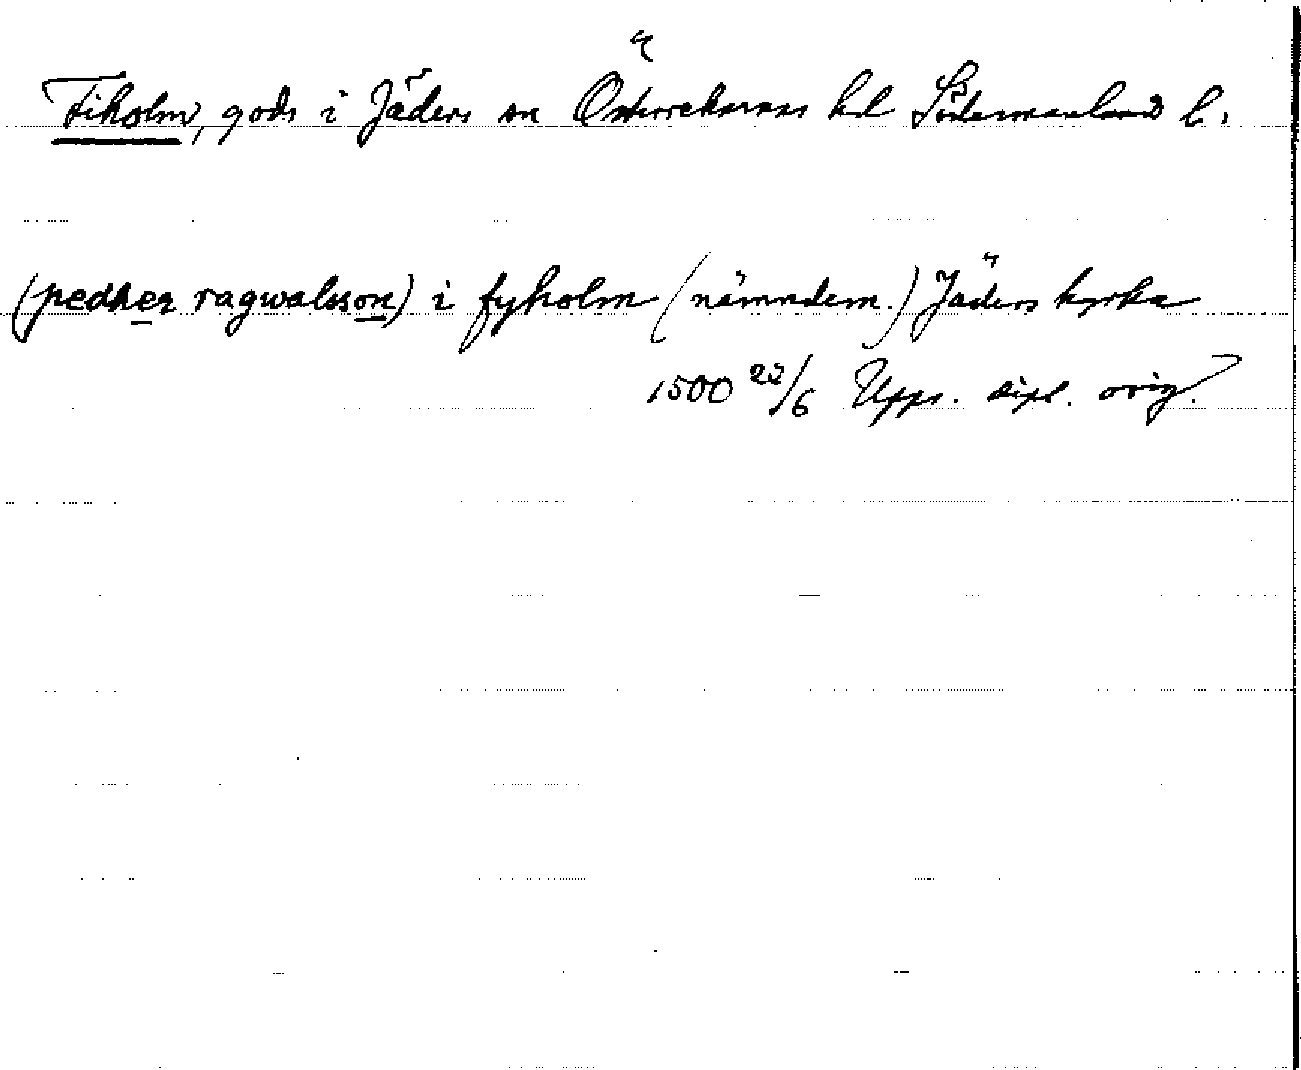 Fiholm, gods i Jäders sn Österrekarnes hd Södermanland l.
(pedher ragwalsson) i fyholm (nämndem.) Jäders kyrka
1500 22/6 Upps. dipl. orig.